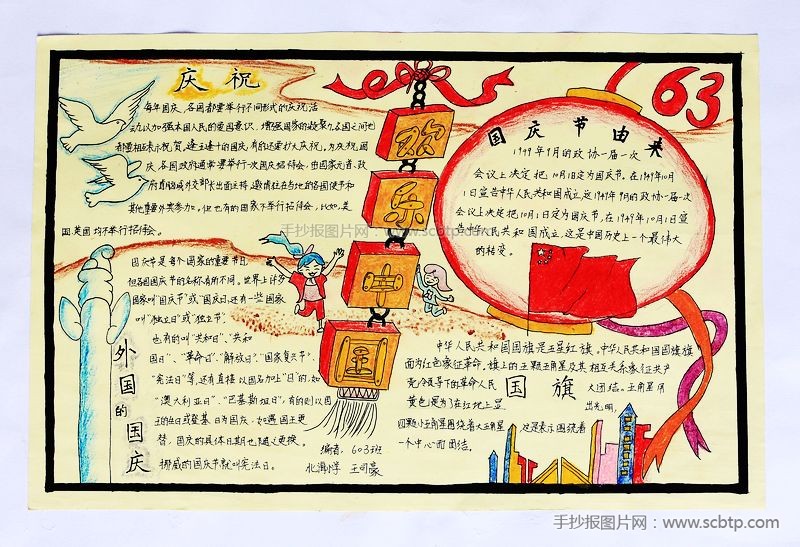 庆祝
每年国庆,各国都要举行不同形式的庆祝活
动,以加强本国人民的爱国意识,增强国家的凝聚力。各国之间也
都要相互表示祝贺。逢五逢十的国庆,有的还要扩大庆祝。为庆祝国
庆,各国政府通常要举行一次国庆招待会,由国家元首、政
府首脑或外交部长出面主持,邀请驻在当地的各国使节和
其他重要外宾参加。但也有的国家不举行招待会,比如,美
国、英国均不举行招待会。
外国的国庆
国庆节是每个国家的重要节日,
但各国国庆节的名称有所不同。世界上许多
国家叫"国庆节"或"国庆日",还有一些国家
叫"独立日"或"独立节",
也有的叫"共和日"、"共和
国日"、"革命日"、"解放日"、"国家复兴节"、
"宪法日"等,还有直接以国名加上"日"的,如
"澳大利亚日"、"巴基斯坦日",有的则以国
王的生日或登基日为国庆,如遇国王更
替,国庆的具体日期也随之更换。
挪威的国庆节就叫宪法日。
欢乐中国
编者:603班
北海小学 王可豪
63
国庆节由来
1949年9月的政协一届一次
会议上决定把10月1日定为国庆节,在1949年10月
1日宣告中华人民共和国成立,这1949年9月的政协一届一次
会议上决定把10月1日定为国庆节,在1949年10月1日宣
告中华人民共和国成立,这是中国历史上一个最伟大
的转变。
国旗
中华人民共和国国旗是五星红旗。中华人民共和国国旗旗
面为红色象征革命,旗上的五颗五角星及其相互关系象征共产
党领导下的革命人民大团结。五角星用
黄色是为了在红地上显出光明,
四颗小五角星围绕着大五角星,这是表示围绕着
一个中心而团结。
手抄报图片网 www.scbtp.com
手抄报图片网:www.scbtp.com